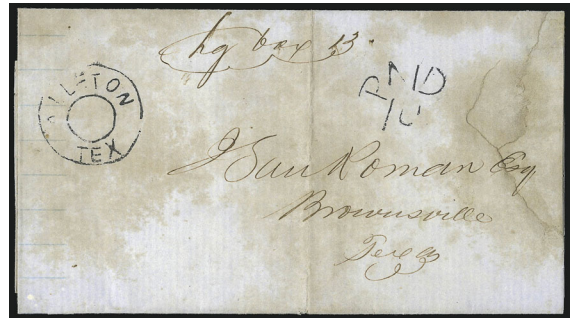 chg box 13
TEX
PAID
10
J San Roman Esq
Brownsville
Texas